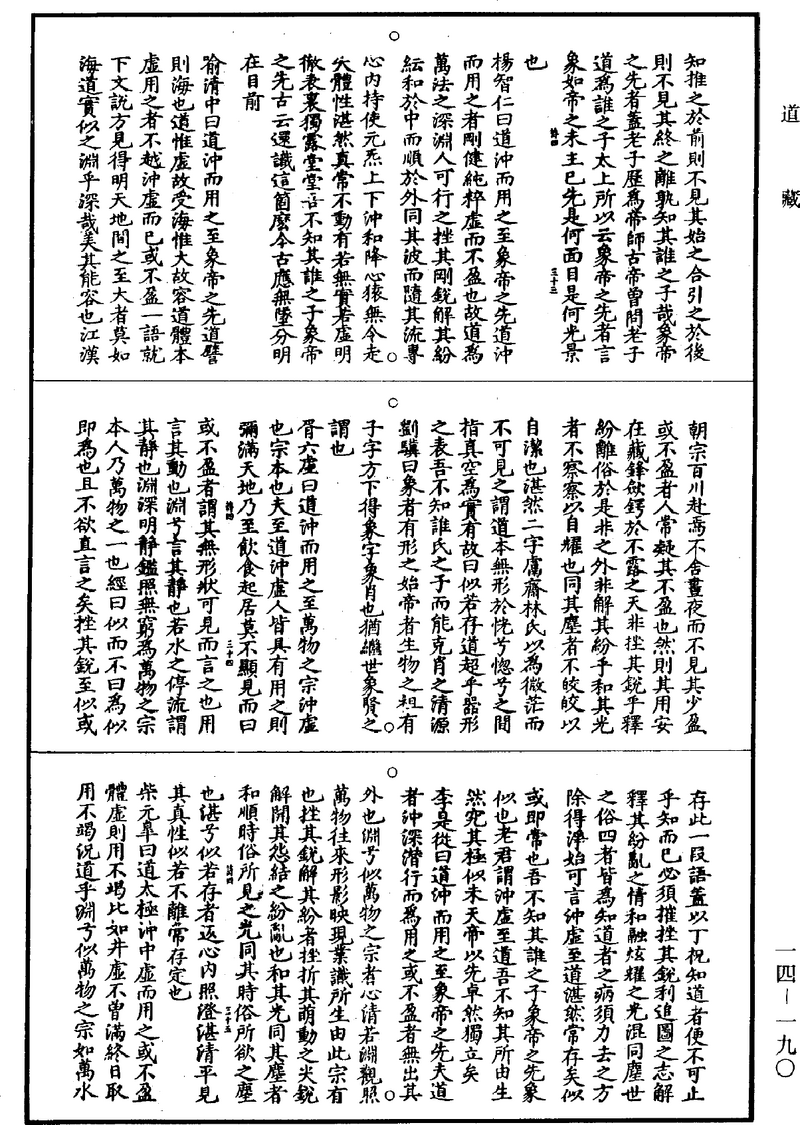 道藏
知推之於前則不見其始之合引之於後
則不見其終之離孰知其誰之子哉象帝
之先者蓋老子歷為帝師古帝曾問老子
道為誰之子太上所以云象帝之先者言
象如帝之未主已先是何面目是何光景
也
楊智仁曰道沖而用之至象帝之先道沖
而用之者剛健純粹虛而不盈也故道為
萬法之深淵人可行之挫其剛銳解其紛
紜和於中而順於外同其波而隨其流專
心內持使元炁上下沖和降心猿無令走
失體性湛然真常不動有若無實若虛明
徹表裏獨露堂堂吾不知其誰之子象帝
之先古云還識這箇麼今古應無墜分明
在目前
喻清中曰道沖而用之至象帝之先道譬
則海也道惟虛故受海惟大故容道體本
虛用之者不越沖虛而已或不盈一語就
下文說方見得明天地間之至大者莫如
海道實似之淵乎深哉美其能容也江漢
朝宗百川赴焉不舍晝夜而不見其少盈
或不盈者人常疑其不盈也然則其用安
在藏鋒斂鍔於不露之天非挫其銳乎釋
紛離俗於是非之外非解其紛乎和其光
者不察察以自耀也同其塵者不皎皎以
自潔也湛然二字鬳齋林氏以為微茫而
不可見之謂道本無形於恍兮惚兮之間
指真空為實有故曰似若存道超乎器形
之表吾不知誰氏之子而能克肖之清源
劉驥曰象者有形之始帝者生物之祖有
子字方下得象字象肖也猶繼世象賢之
謂也
胥六虛曰道沖而用之至萬物之宗沖虛
也宗本也夫至道沖虛人皆具有用之則
彌滿天地乃至飲食起居莫不顯見而曰
或不盈者謂其無形狀可見而言之也用
言其動也淵兮言其靜也若水之停流謂
其靜也淵深明靜鑑照無窮為萬物之宗
本人乃萬物之一也經曰似而不曰為似
即為也且不欲直言之矣挫其銳至似或
存此一段語蓋以丁祝知道者便不可止
乎知而已必須摧挫其銳利追圖之志解
釋其紛亂之情和融炫耀之光混同塵世
之俗四者皆為知道者之病須力去之方
除得淨始可言沖虛至道湛然常存矣似
或即常也吾不知其誰之子象帝之先象
似也老君謂沖虛至道吾不知其所由生
然究其極似未天帝以先卓然獨立矣
李是從曰道沖而用之至象帝之先夫道
者沖深潛行而為用之或不盈者無出其
外也淵兮似萬物之宗者心清若淵觀照
萬物往來形影映現業識所生由此宗有
也挫其銳解其紛者挫折其萌動之尖銳
解開其怨結之紛亂也和其光同其塵者
和順時俗所見之光同其時俗所欲之塵
也湛兮似若存者返心內照澄湛清平見
其真性似若不離常存定也
柴元皋曰道太極沖中虛而用之或不盈
體虛則用不竭比如井虛不曾滿終日取
用不竭況道乎淵兮似萬物之宗如萬水
一四—一九〇